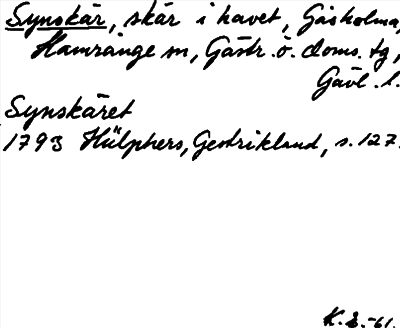 Synskär, skär i havet, Gåsholma,
Hamrånge sn, Gästr. ö. doms. tg,
Gävl. l.
Synskäret
1793 Hülphers, Gestrikland, s. 127.
K.L.-61.